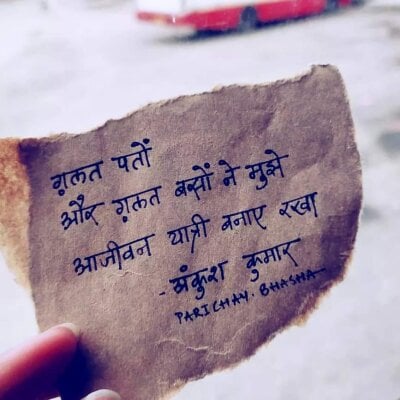 ग़लत पतों
और ग़लत बसों ने मुझे
आजीवन यात्री बनाए रखा
- अंकुश कुमार
PARICHAY. BHASHA